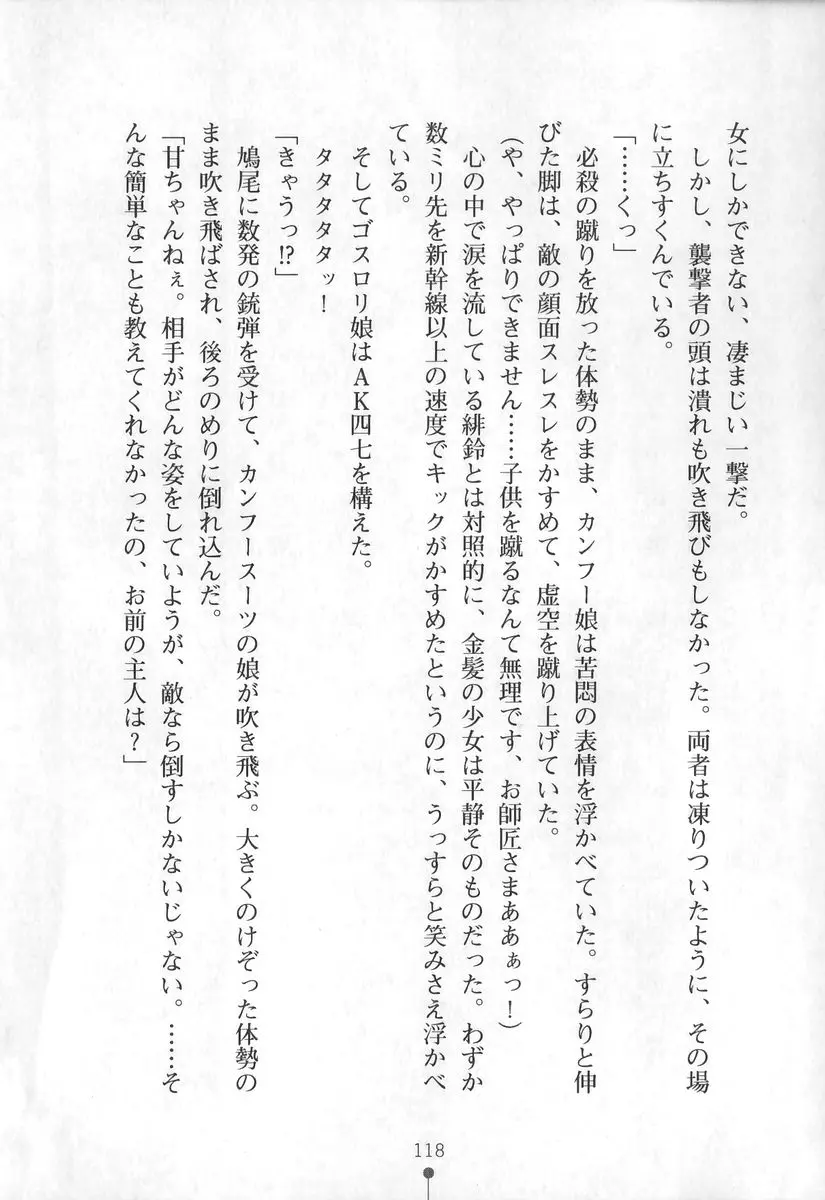 女にしかできない、凄まじい一撃だ。
しかし、襲撃者の頭は潰れも吹き飛びもしなかった。両者は凍りついたように、その場
に立ちすくんでいる。
「……くっ」
必殺の蹴りを放った体勢のまま、カンフー娘は苦悶の表情を浮かべていた。すらりと伸
びた脚は、敵の顔面スレスレをかすめて、虚空を蹴り上げていた。
（や、やっぱりできません……子供を蹴るなんて無理です、お師匠さまああぁっ！）
心の中で涙を流している緋鈴とは対照的に、金髪の少女は平静そのものだった。わずか
数ミリ先を新幹線以上の速度でキックがかすめたというのに、うっすらと笑みさえ浮かべ
ている。
そしてゴスロリ娘はＡＫ四七を構えた。
タタタタタッ！
「きゃうっ!?」
鳩尾に数発の銃弾を受けて、カンフースーツの娘が吹き飛ぶ。大きくのけぞった体勢の
まま吹き飛ばされ、後ろのめりに倒れ込んだ。
「甘ちゃんねぇ。相手がどんな姿をしていようが、敵なら倒すしかないじゃない。……そ
んな簡単なことも教えてくれなかったの、お前の主人は？」
118